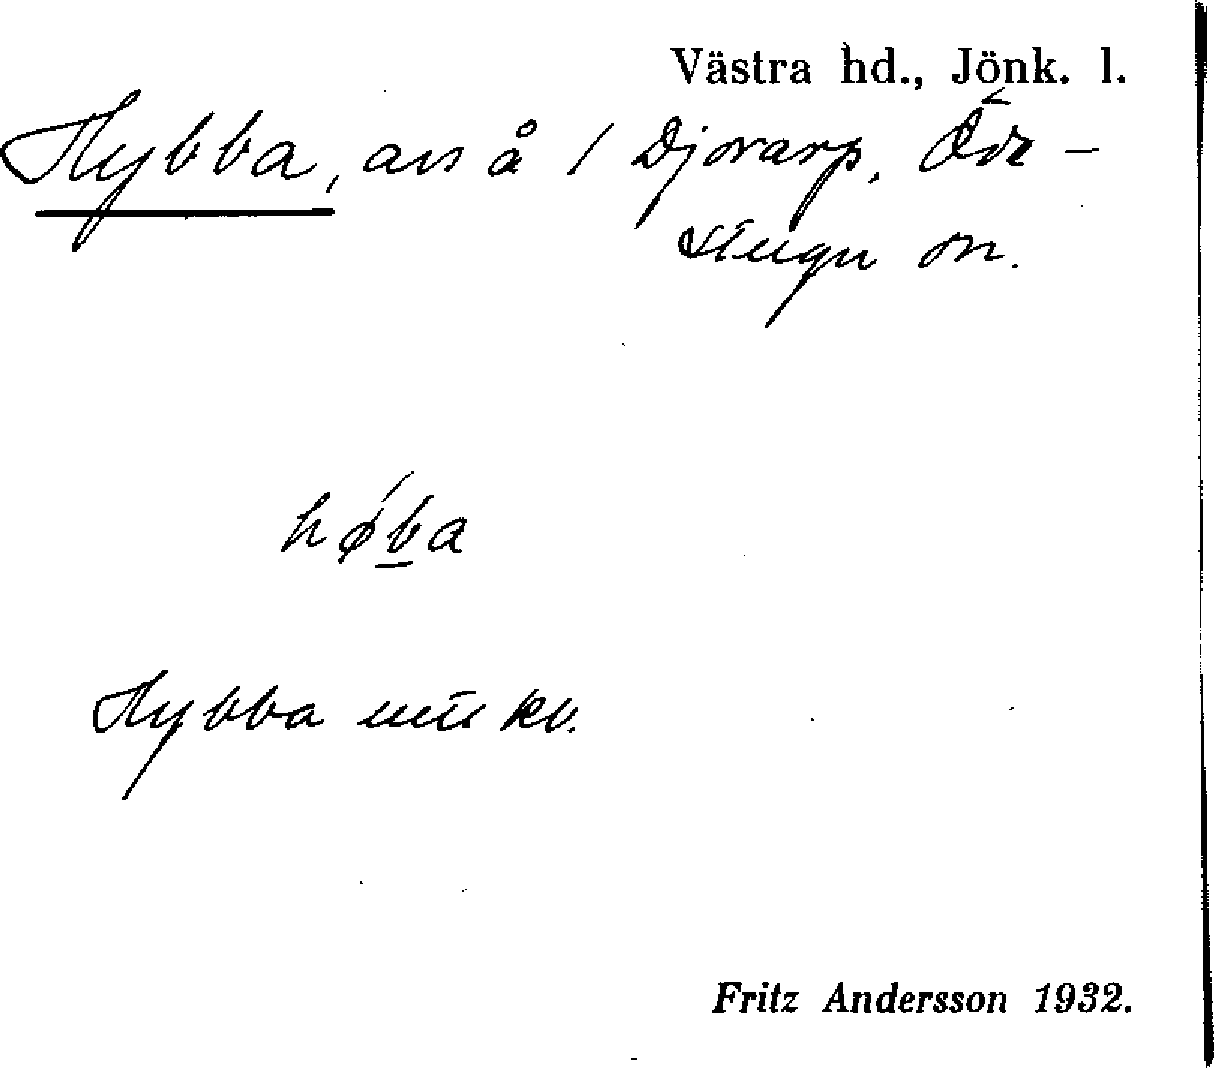 Västra hd., Jönk. l.
Hybba, ans å / Djorarp, Ör-
stugu sn.
høba
Hybba kv.
Fritz Andersson 1932.